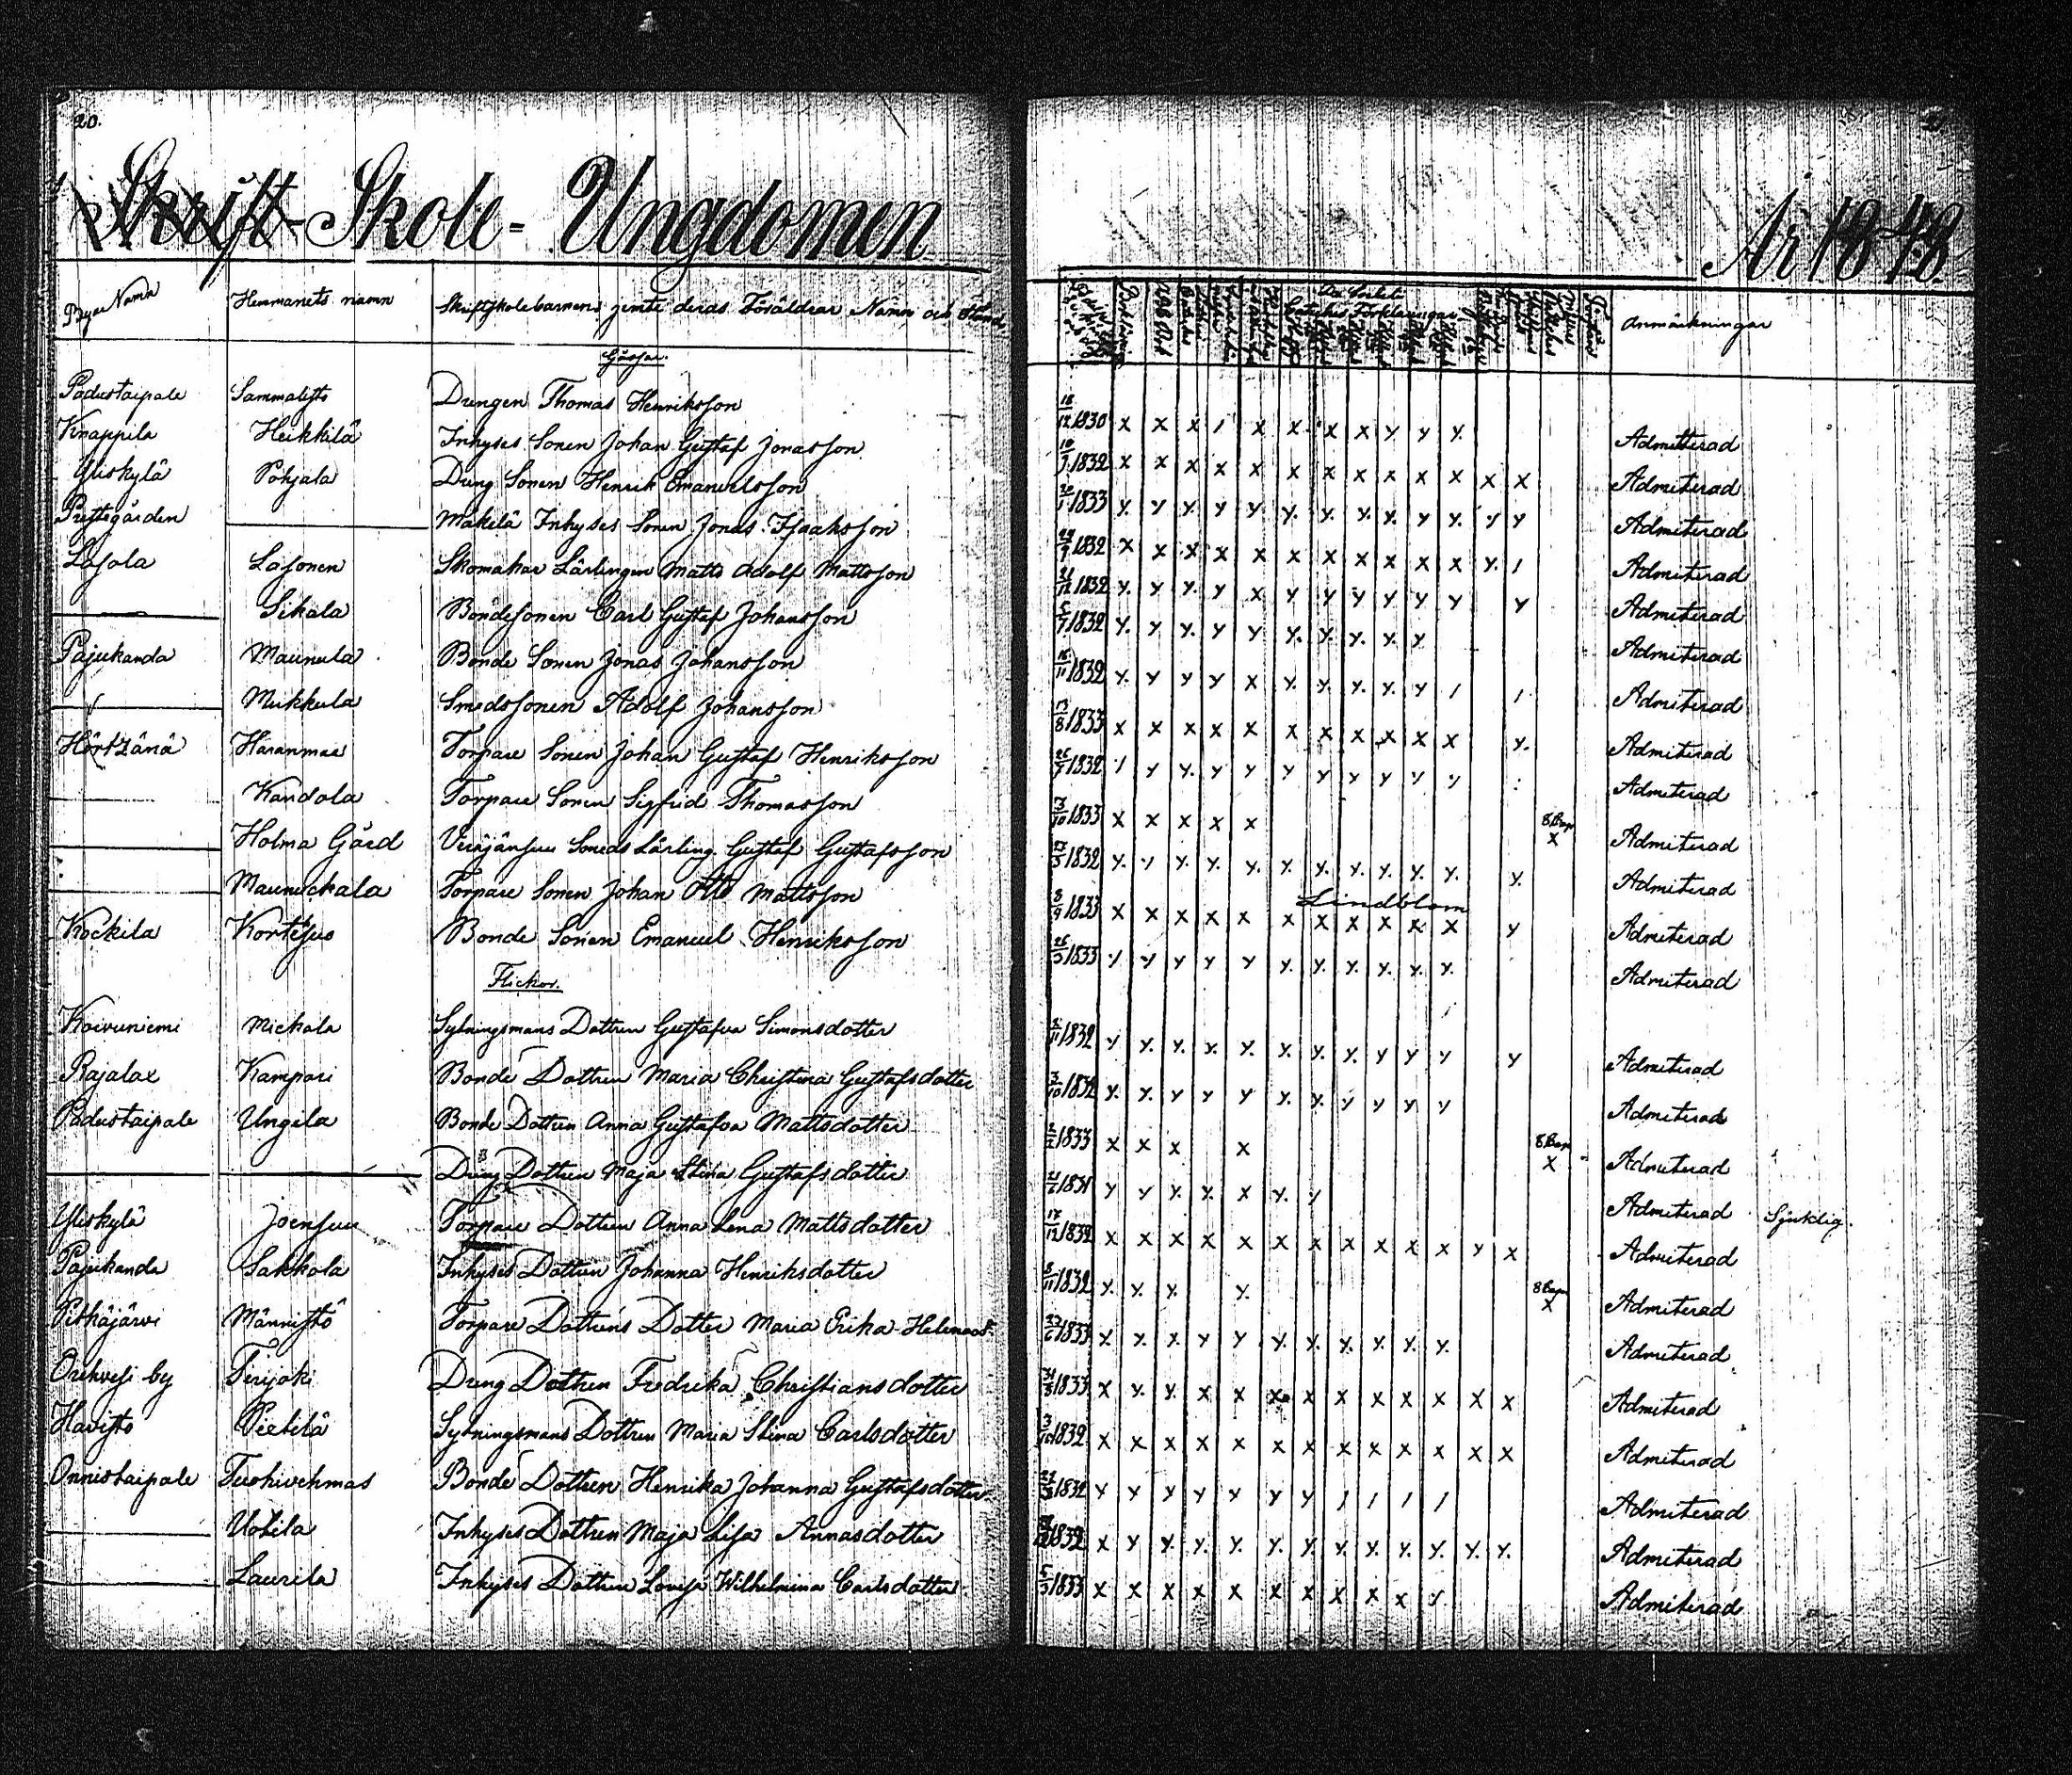 20.
Skrift-Skole-Ungdomen
År 1848
Byar Namn Hemmanets namn Skriftskolebarnens jemte deras Föräldrar Namn och Stånd Anmärkningar
Gossar.
Padustaipale Sammalisto Drengen Thomas Henriksson 18/12 1830 x x x / x x x x y y y Admitterad
Knappila Heikkilä Inhyses Sonen Johan Gustaf Jonasson 10/7 1832 x x x x x x x x x x x x x Admiterad
Yliskylä Pohjala Dreng Sonen Henrik Emanuelsson 20/1 1833 y y y y y y y y y y y y y Admiterad
Prestegården Mäkelä Inhyses Sonen Jonas Isaaksson 29/9 1832 x x x x x x x x x x x y / Admiterad
Lasola Lasonen Skomakar Lärlingen Matts Adolf Mattsson 21/12 1832 y y y y x y y y y y y y Admiterad
Sikala Bondesonen Carl Gustaf Johansson 5/7 1832 y y y y y y y y y y Admiterad
Pajukanda Maunula Bonde Sonen Jonas Johansson 16/11 1832 y y y y x y y y y y / / Admiterad
Mukkula Smedssonen Adolf Johansson 13/8 1833 x x x x x x x x x x x y Admiterad
Härtzänä Haranmaa Torpare Sonen Johan Gustaf Henriksson 26/7 1832 / y y y y y y y y y y Admiterad
Kandola Torpare Sonen Sigfrid Thomasson 13/10 1833 x x x x x 8 Bap x Admiterad
Holma Gård Smeds Lärling Gustaf Gustafsson 23/5 1832 y y y y y y y y y y y y Admiterad
Maunuckala Torpare Sonen Johan Otto Mattsson 8/9 1833 x x x x x x x x x x x y Lindblom Admiterad
Kockila Kortesuo Bonde Sonen Emanuel Henriksson 26/3 1833 y y y y y y y y y y y Admiterad
Flickor.
Koivuniemi Mickola Sytningsmans Dottren Gustafva Simonsdotter 5/11 1832 y y y y y y y y y y y y Admiterad
Rajalax Kampari Bonde Dottren Maria Christina Gustafsdotter 3/10 1832 y y y y y y y y y y y Admiterad
Padustaipale Ungila Bonde Dottren Anna Gustafva Mattsdotter 2/2 1833 x x x x 8 Bap x Admiterad
Dreng Dottren Maja Stina Gustafsdotter 21/6 1831 y y y y x y y Admiterad Sjuklig.
Yliskylä Joensuu Torpare Dottren Anna Lena Mattsdotter 17/12 1832 x x x x x x x x x x x y x Admiterad
Pajukanda Sakkola Inhyses Dottren Johanna Henriksdotter 8/11 1832 y y y y 8 Bap x Admiterad
Pitkäjärvi Männistö Torpare Dottrens Dotter Maria Erika Helenasd:r 23/6 1833 x x x y y y y y y y y Admiterad
Orihvesi by Terijoki Dreng Dottren Fredrika Christiansdotter 31/3 1833 x y y x x x x x x x x x x Admiterad
Havisto Pietilä Sytningsmans Dottren Maria Stina Carlsdotter 3/10 1832 x x x x x x x x x x x x x Admiterad
Onnistaipale Turhivehmas Bonde Dottren Henrika Johanna Gustafsdotter 1832 y y y y y y y / / / / Admiterad
Uotila Inhyses Dottren Maja Lisa Annasdotter 1832 x y y y y y y y y y y y y Admiterad
Laurila Inhyses Dottren Lovisa Wilhelmina Carlsdotter 5/3 1833 x x x x x x x x x y Admiterad